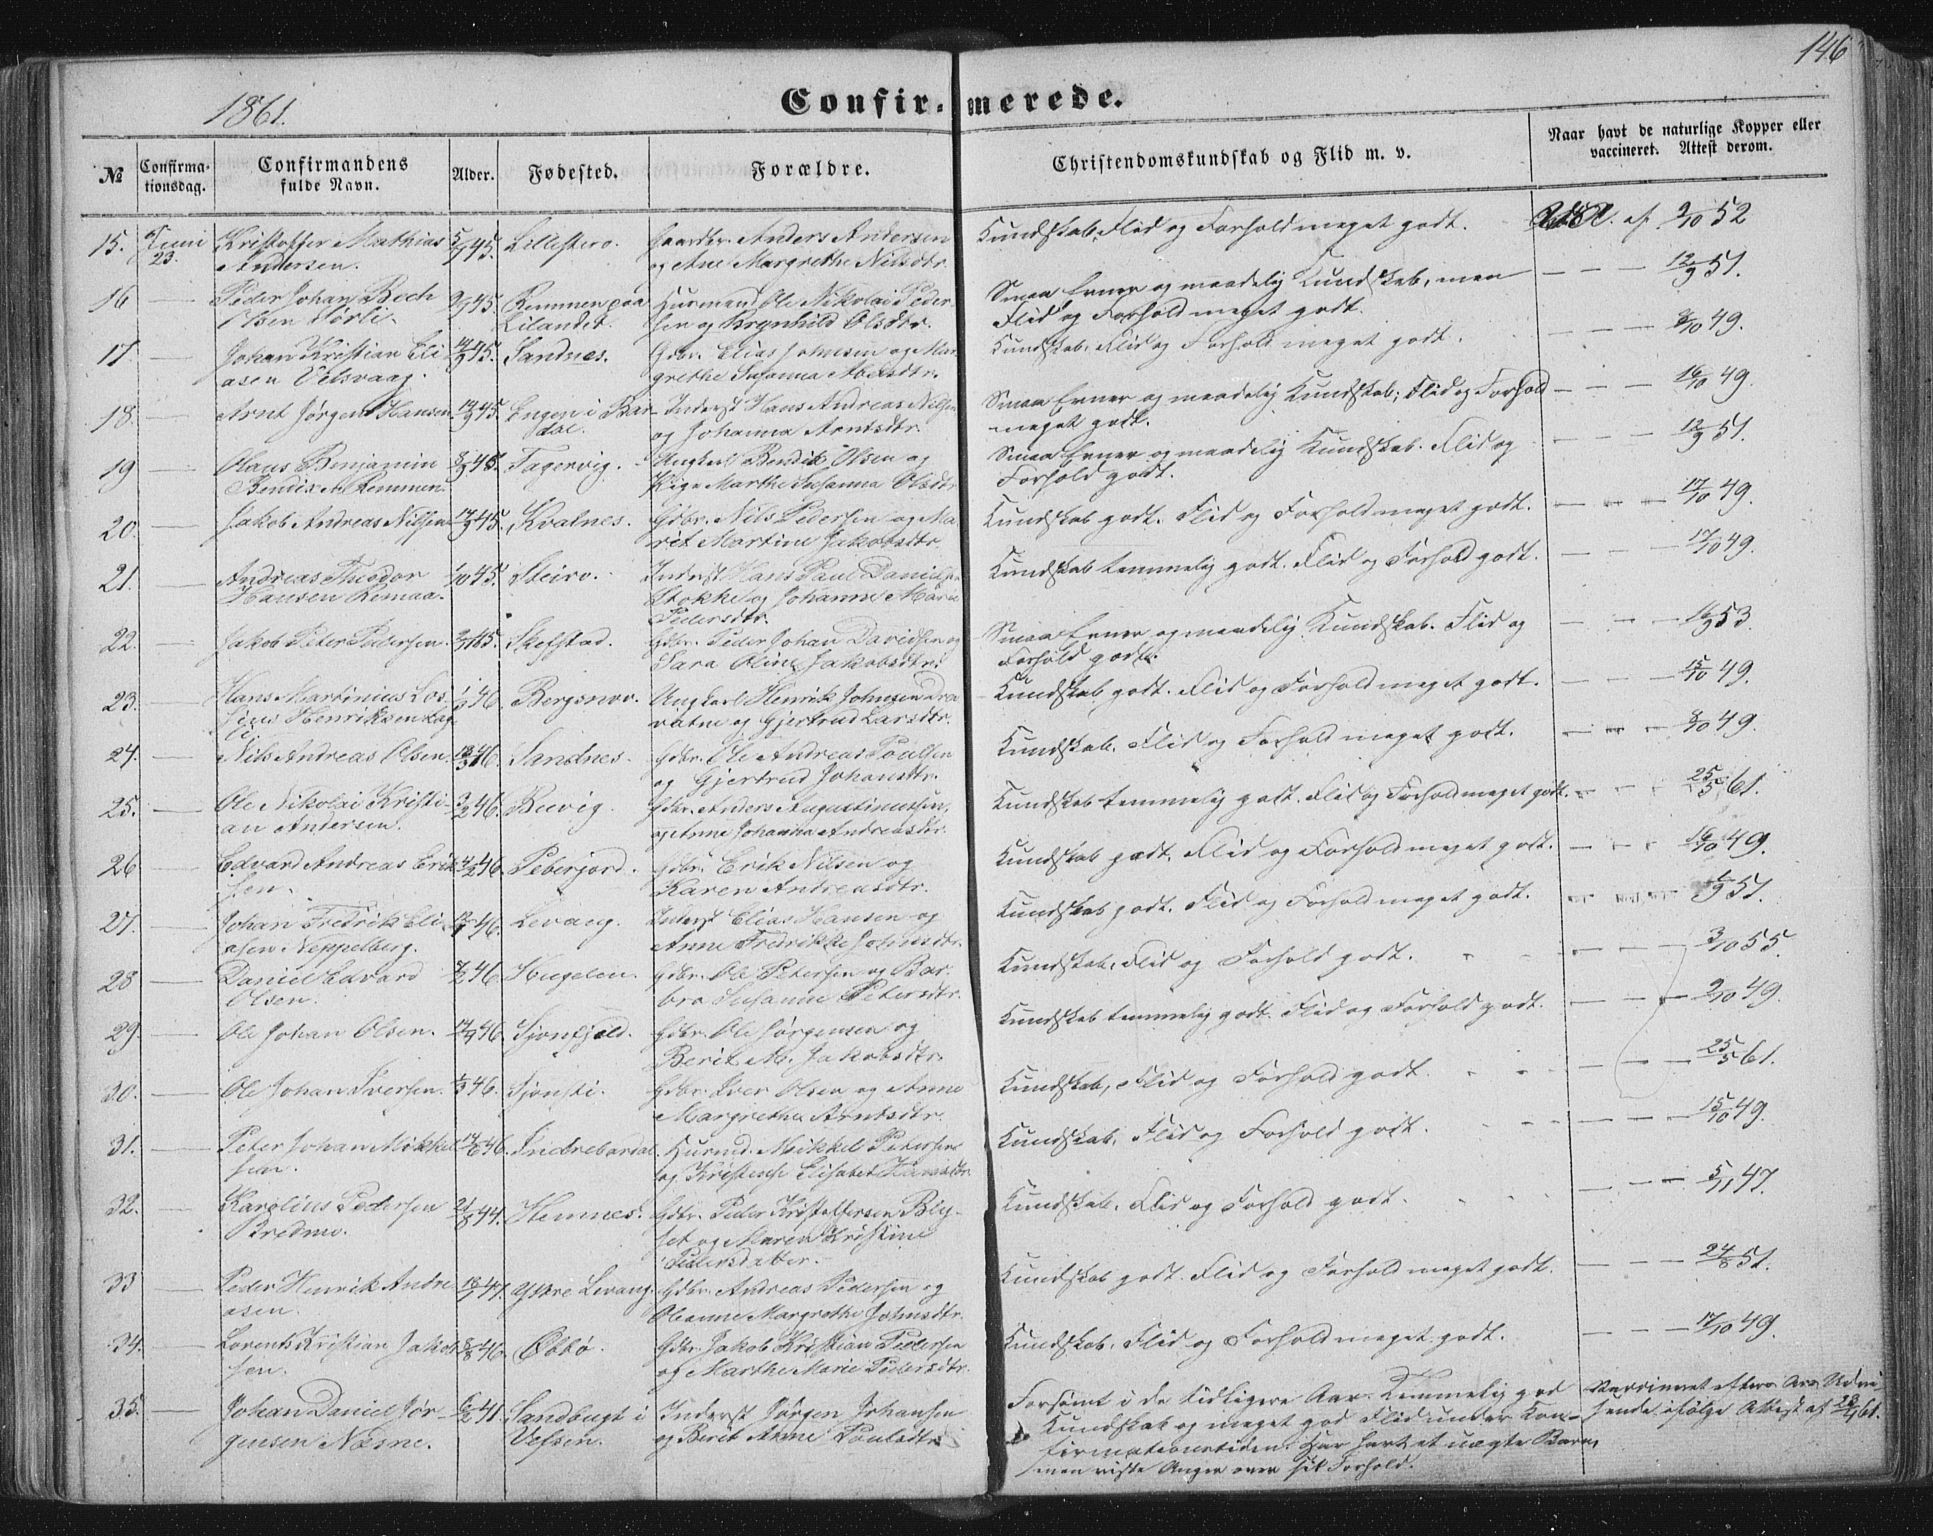 146
1861.
Confir- merede.
№
Confirma-
tionsdag.
Confirmandens
fulde Navn.
Alder.
Fødested.
Forældre.
Christendomskundskab og Flid m. v.
Naar havt de naturlige Kopper eller
vaccineret. Attest derom.
15. Juni Kristoffer Mathias 5/7 45. Lillestero. Gaardbr. Anders Andersen Kundskab, Flid og Forhold meget godt. af 9/10 52
23. Andersen. og Ane Margrethe Nilsdtr.
16 — Peder Johan Bech 9/7 45. Remmen paa Husmand Ole Nikolai Peder- Smaa Evner og maadelig Kundskab, men — — — 12/9 51.
Olsen Sørli. Lilandet. sen og Brynhild Olsdtr. Flid og Forhold meget godt.
17. — Johan Kristian Eli 14/9 45. Sandnes. Gdbr. Elias Johnsen og Mar- Kundskab, Flid og Forhold meget godt. — — — 8/10 49.
asen Velsvaag. grethe Susanna Abelsdtr.
18. — Arnt Jørgen Hansen 19/9 45. Engen i Bar- Inderst Hans Andreas Nilsen Smaa Evner og maadelig Kundskab; Flid og Forhold — — — 16/10 49.
dal. og Johanna Arntsdtr. meget godt.
19 — Olaus Benjamin 8/9 45. Fagervig. Ungkarl Bendik Olsen og Smaa Evner og maadelig Kundskab. Flid og — — — 12/9 51.
Bendix. Remmen. Pige Marthe Susanna Olsdtr. Forhold godt.
20. — Jakob Andreas Nilssen 14/9 45. Kvalnes. Gdbr. Nils Pedersen og Ma- Kundskab godt. Flid og Forhold meget godt. — — — 17/10 49.
rit Martine Jakobsdtr.
21. — Andreas Theodor 1/10 45. Steiro. Inderst Hans Paul Danielsen Kundskab temmelig godt. Flid og Forhold godt. — — — 17/10 49.
Hansen Remaa. Stokke og Johanne Marie
Pedersdtr.
22. — Jakob Peter Pedersen. Skefstad. Gdbr. Peder Johan Davidsen og Smaa Evner og maadelig Kundskab. Flid og — — — 16/9 53.
Sara Oline Jakobsdtr. Forhold godt.
23. — Hans Martinius Los 46. Bergsnov. Ungkarl Henrik Johnsen Dra Kundskab godt. Flid og Forhold meget godt. — — — 15/10 49.
Henriksen vatne og Gjertrud Larsdtr.
24. — Nils Andreas Olsen. 18/3 46. Sandnes. Gdbr. Ole Andreas Poulsen Kundskab, Flid og Forhold meget godt. — — — 8/10 49.
og Gjertrud Johansdtr.
25. — Ole Nikolai Kristi- 3/2 46. Buvig. Gdbr. Anders Augustinussen, Kundskab temmelig godt. Flid og Forhold meget godt. — — 25/5 61.
an Andersen. og Anne Johanna Andreasdtr.
26 — Edvard Andreas Erik 4/2 46. Peberjord. Gdbr. Erik Nilsen og Kundskab godt. Flid og Forhold meget godt. — — — 16/10 49.
sen. Karen Andreasdtr.
27. — Johan Fredrik Eli 46. Levang. Inderst Elias Hansen og Kundskab godt. Flid og Forhold meget godt. — — — 6/9 51.
asen Neppelberg. Anne Fredrikke Johnsdtr.
28 — Daniel Edvard 7/2 46. Hugelen. Gdbr. Ole Petersen og Bar- Kundskab, Flid og Forhold godt. — — — 3/10 55.
Olsen. bro Susanne Petersdtr.
29. — Ole Johan Olsen. 46. Sjonfjeld. Gdbr. Ole Jørgensen og Kundskab temmelig godt. Flid og Forhold godt. — — — 9/10 49.
Berit M. Jakobsdtr.
30. — Ole Johan Iversen. 46. Sjonsti. Gdbr. Iver Olsen og Anne Kundskab, Flid og Forhold godt. — — 25/5 61.
Margrethe Arntsdtr.
31. — Peter Johan Mikkel 46. Indrebardal. Husmd. Mikkel Petersen Kundskab, Flid og Forhold godt. — — — 15/10 49.
sen. og Kristense Elisabet Hansdtr.
32. — Karolius Pedersen 21/8 44. Hemnes. Gdbr. Peder Kristoffersen Bly- Kundskab, Flid og Forhold godt. — — — 5/11 47.
Bredmo. set og Maren Kristine
Pedersdatter.
33 — Peder Henrik Andre 44. Yttre Levang. Gdbr. Andreas Pedersen og Kundskab godt. Flid og Forhold meget godt. — — — 24/8 51.
asen. Oleanne Margrethe Johnsdtr.
34. — Lorents Kristian Jakob 8/8 46. Øbbø. Gdbr. Jakob Kristian Pedersen Kundskab, Flid og Forhold meget godt. — — — 17/10 49.
sen. og Marthe Marie Pedersdtr.
35. — Johan Daniel Jør- 6/2 41. Sandbugt i Inderst Jørgen Johansen Forsømt i de tidligere Aar. Temmelig god Vaccineret efter
gensen Næsne. Vefsen. og Berit Anne Poulsdtr. Kundskab og meget god Flid under Kon- sende, ifølge Attest af 23/4 61.
firmationstiden. Har havt et uægte Barn,
men viste Anger over sit Forhold.